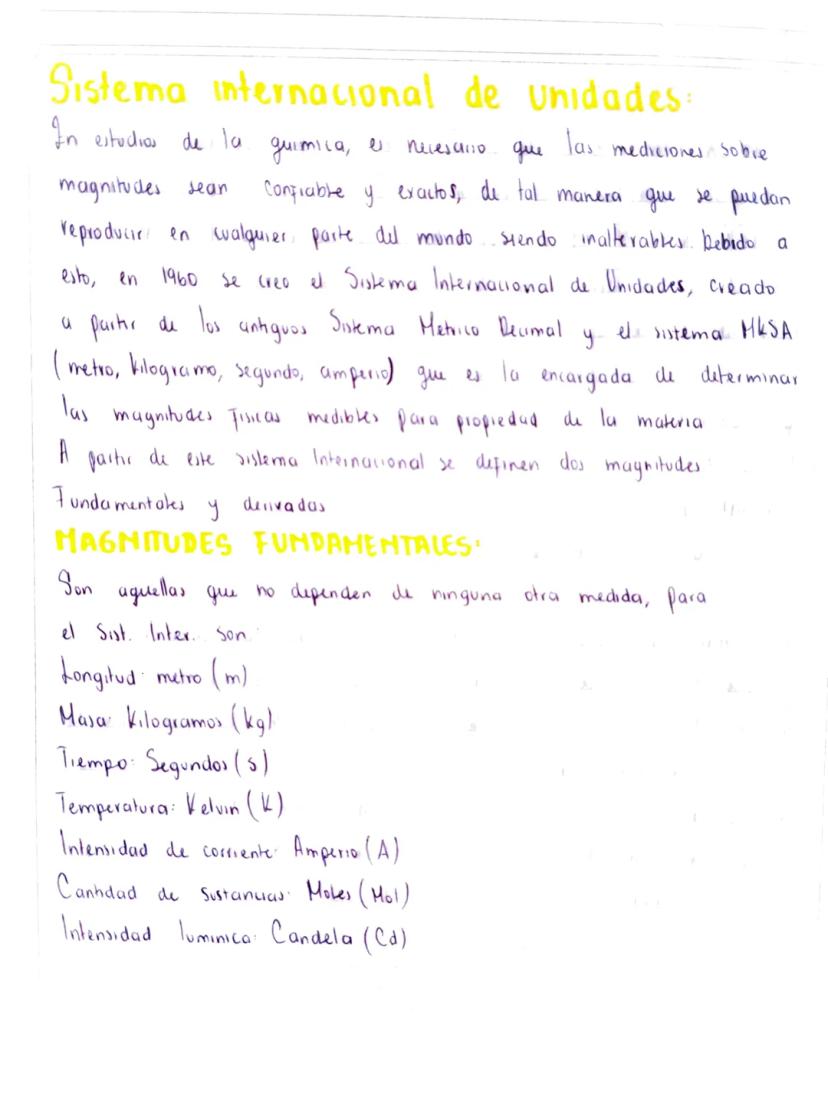 Sistema internacional de unidades:
In estudios de la quimica, es necesario que las mediciones sobre
magnitudes sean confiable y exactos, de tal manera que se puedan
reproducir en cualquier parte del mundo siendo inalterables. Debido a
esto, en 1960 se creo el Sistema Internacional de Unidades, creado
a partir de los antiguos Sistema Metrico Decimal y el sistema MKSA
(metro, kilogramo, segundo, amperio) que es la encargada de determinar
las magnitudes fisicas medibles para propiedad de la materia
A partir de este sistema Internacional se definen dos magnitudes
Fundamentales y derivadas
MAGNITUDES FUNDAMENTALES:
Son aquellas que no dependen de ninguna otra medida, para
el Sist. Inter. son:
Longitud: metro (m)
Masa: Kilogramos (kg)
Tiempo: Segundos (s)
Temperatura: Kelvin (K)
Intensidad de corriente: Amperio (A)
Cantidad de sustancias: Moles (Mol)
Intensidad luminica: Candela (Cd)